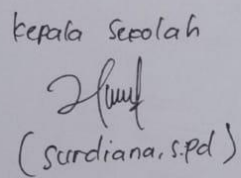 Kepala Sekolah
(Surdiana, S.Pd)